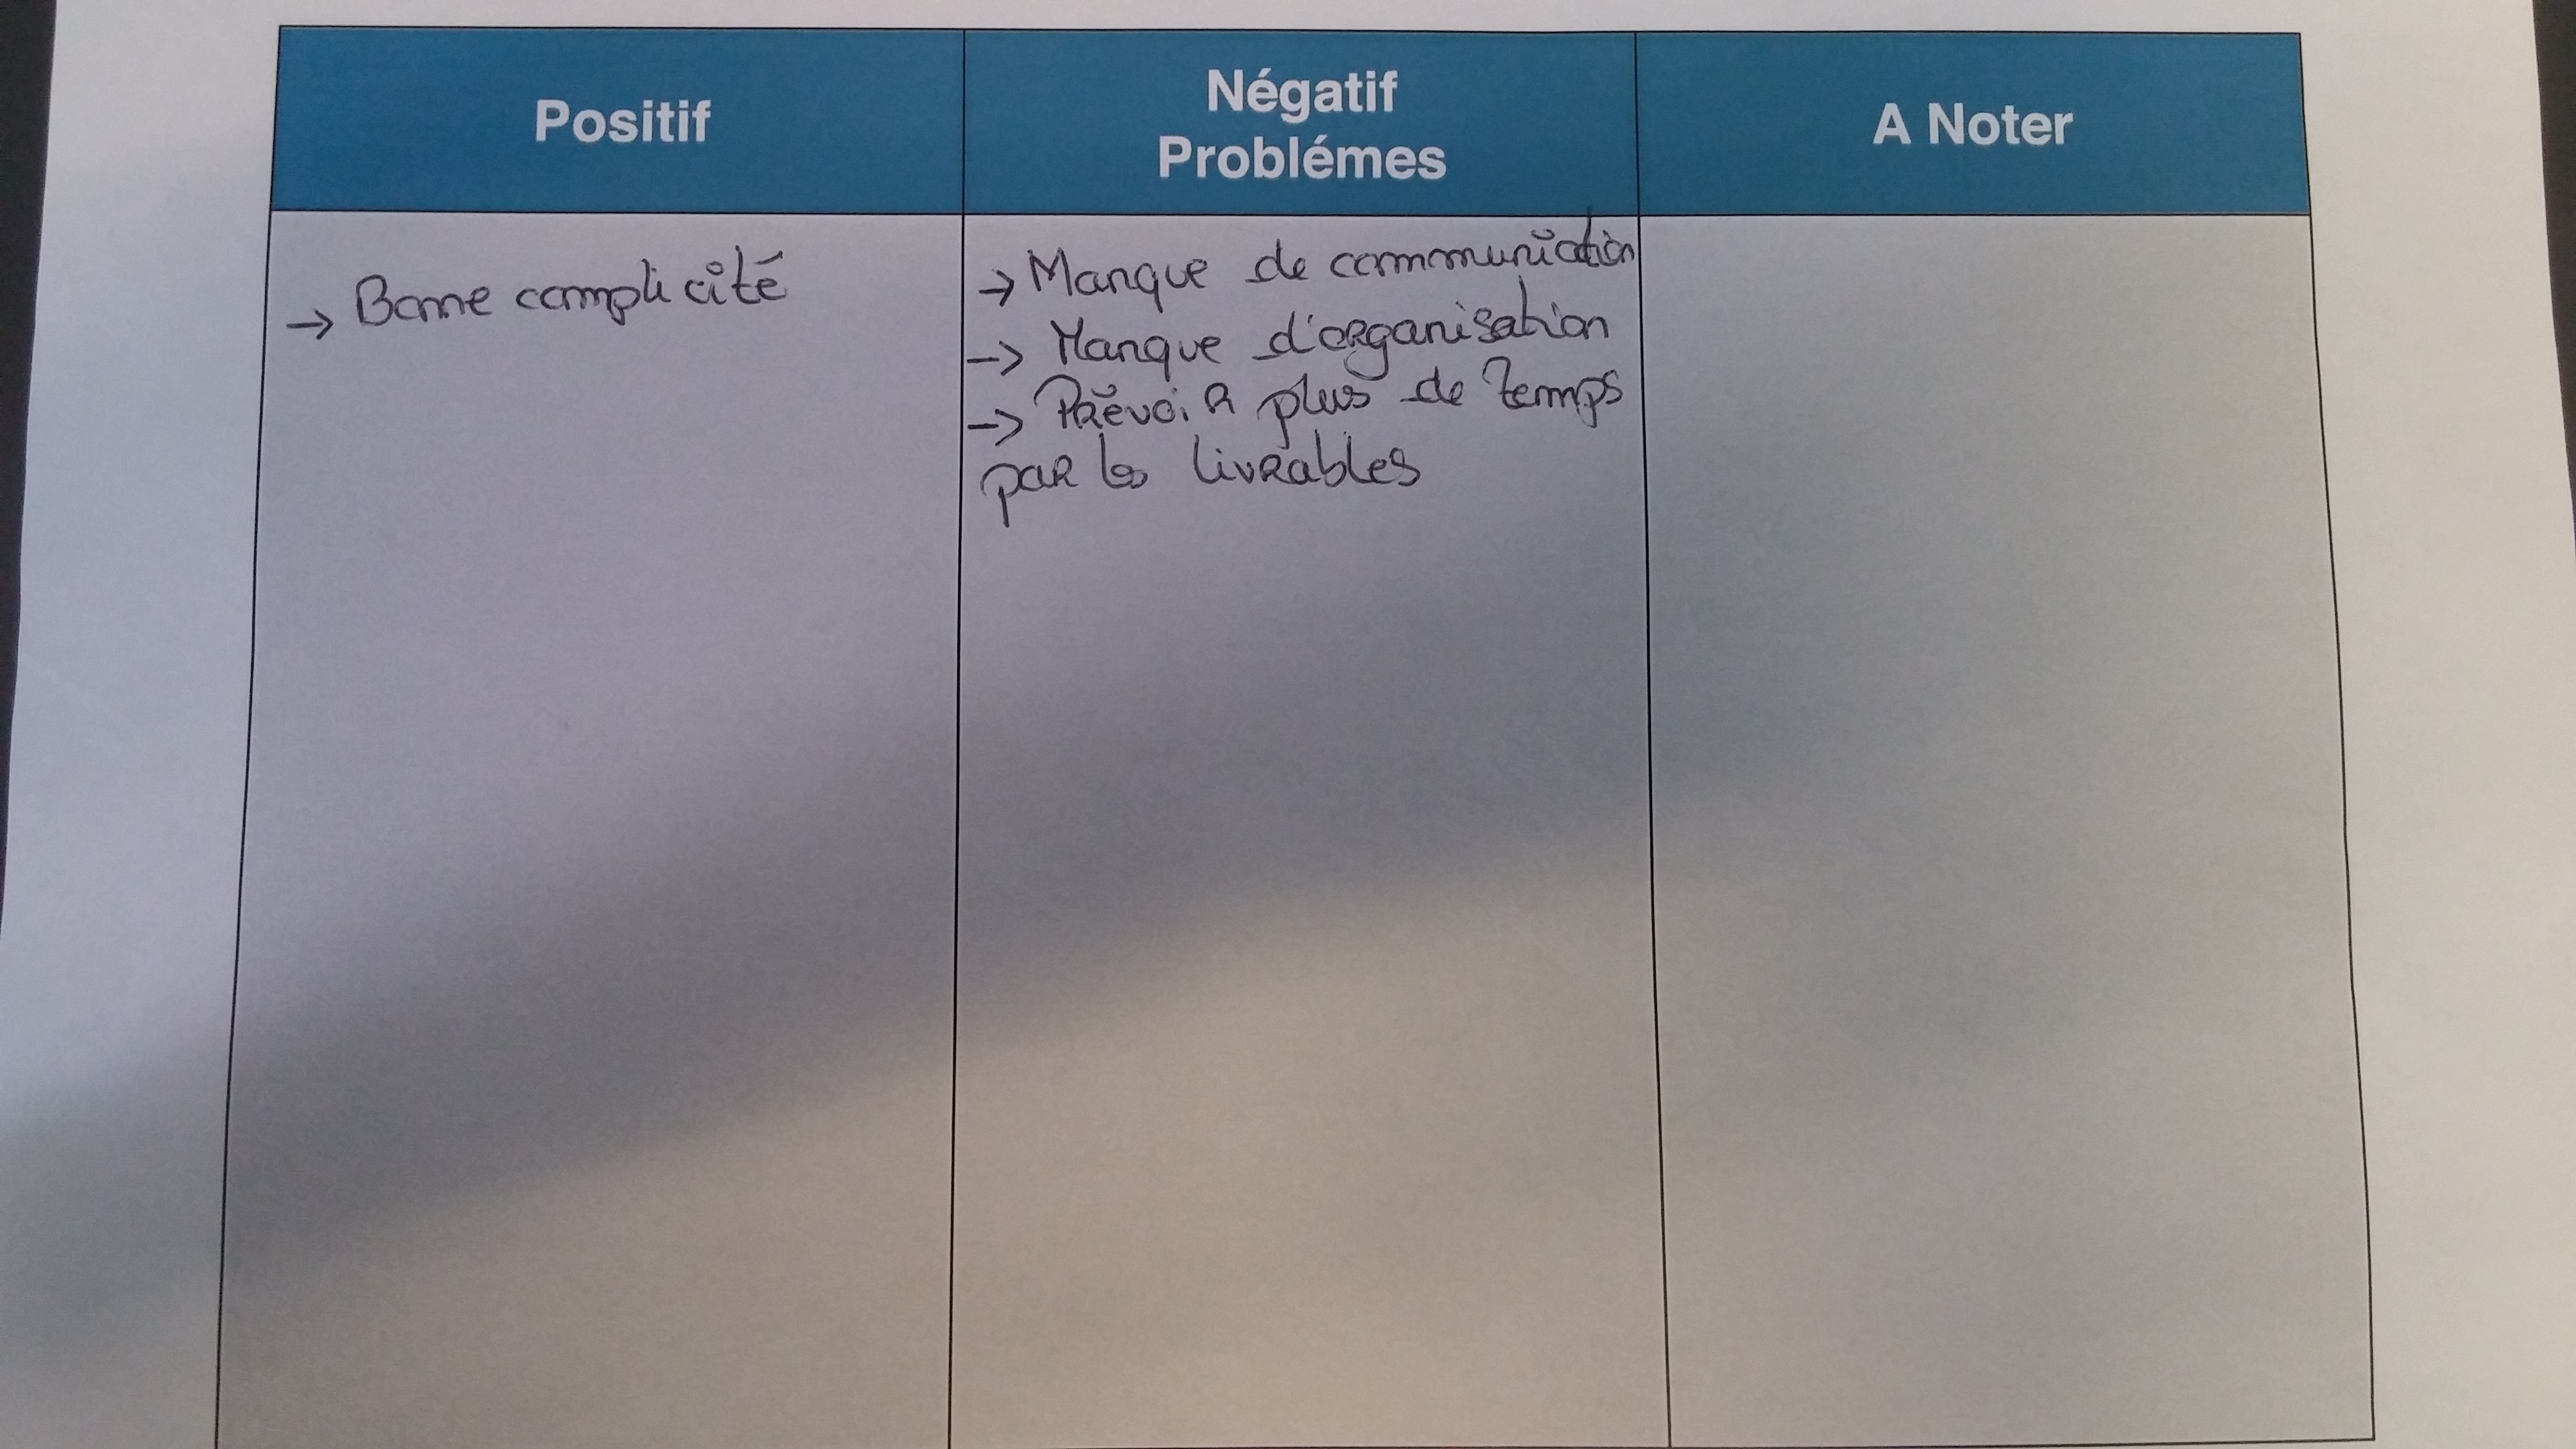 Positif
Négatif
Problémes
A Noter
→ Bonne complicité
→ Manque de communication
→ Manque d'organisation
→ Prévoir plus de temps
par les livrables